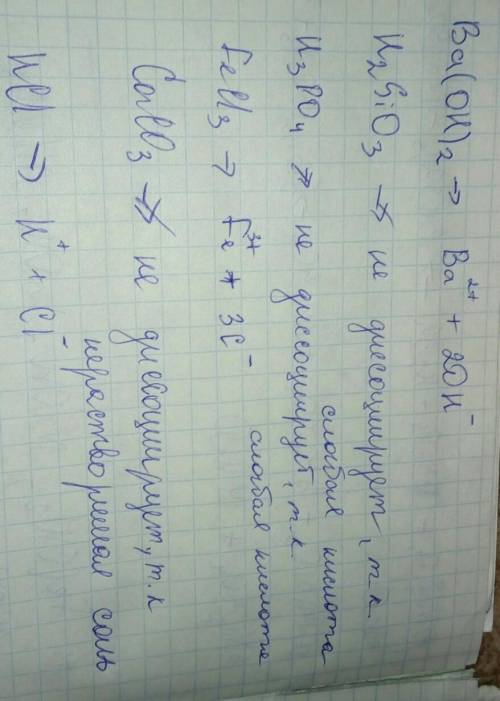 Ba(OH)₂ → Ba²⁺ + 2OH⁻
H₂SiO₃ ↛ не диссоциирует, т.к.
слабая кислота
H₃PO₄ ↛ не диссоциирует, т.к.
слабая кислота
FeCl₃ → Fe³⁺ + 3Cl⁻
CaCO₃ ↛ не диссоциирует, т.к
нерастворимая соль
HCl → H⁺ + Cl⁻